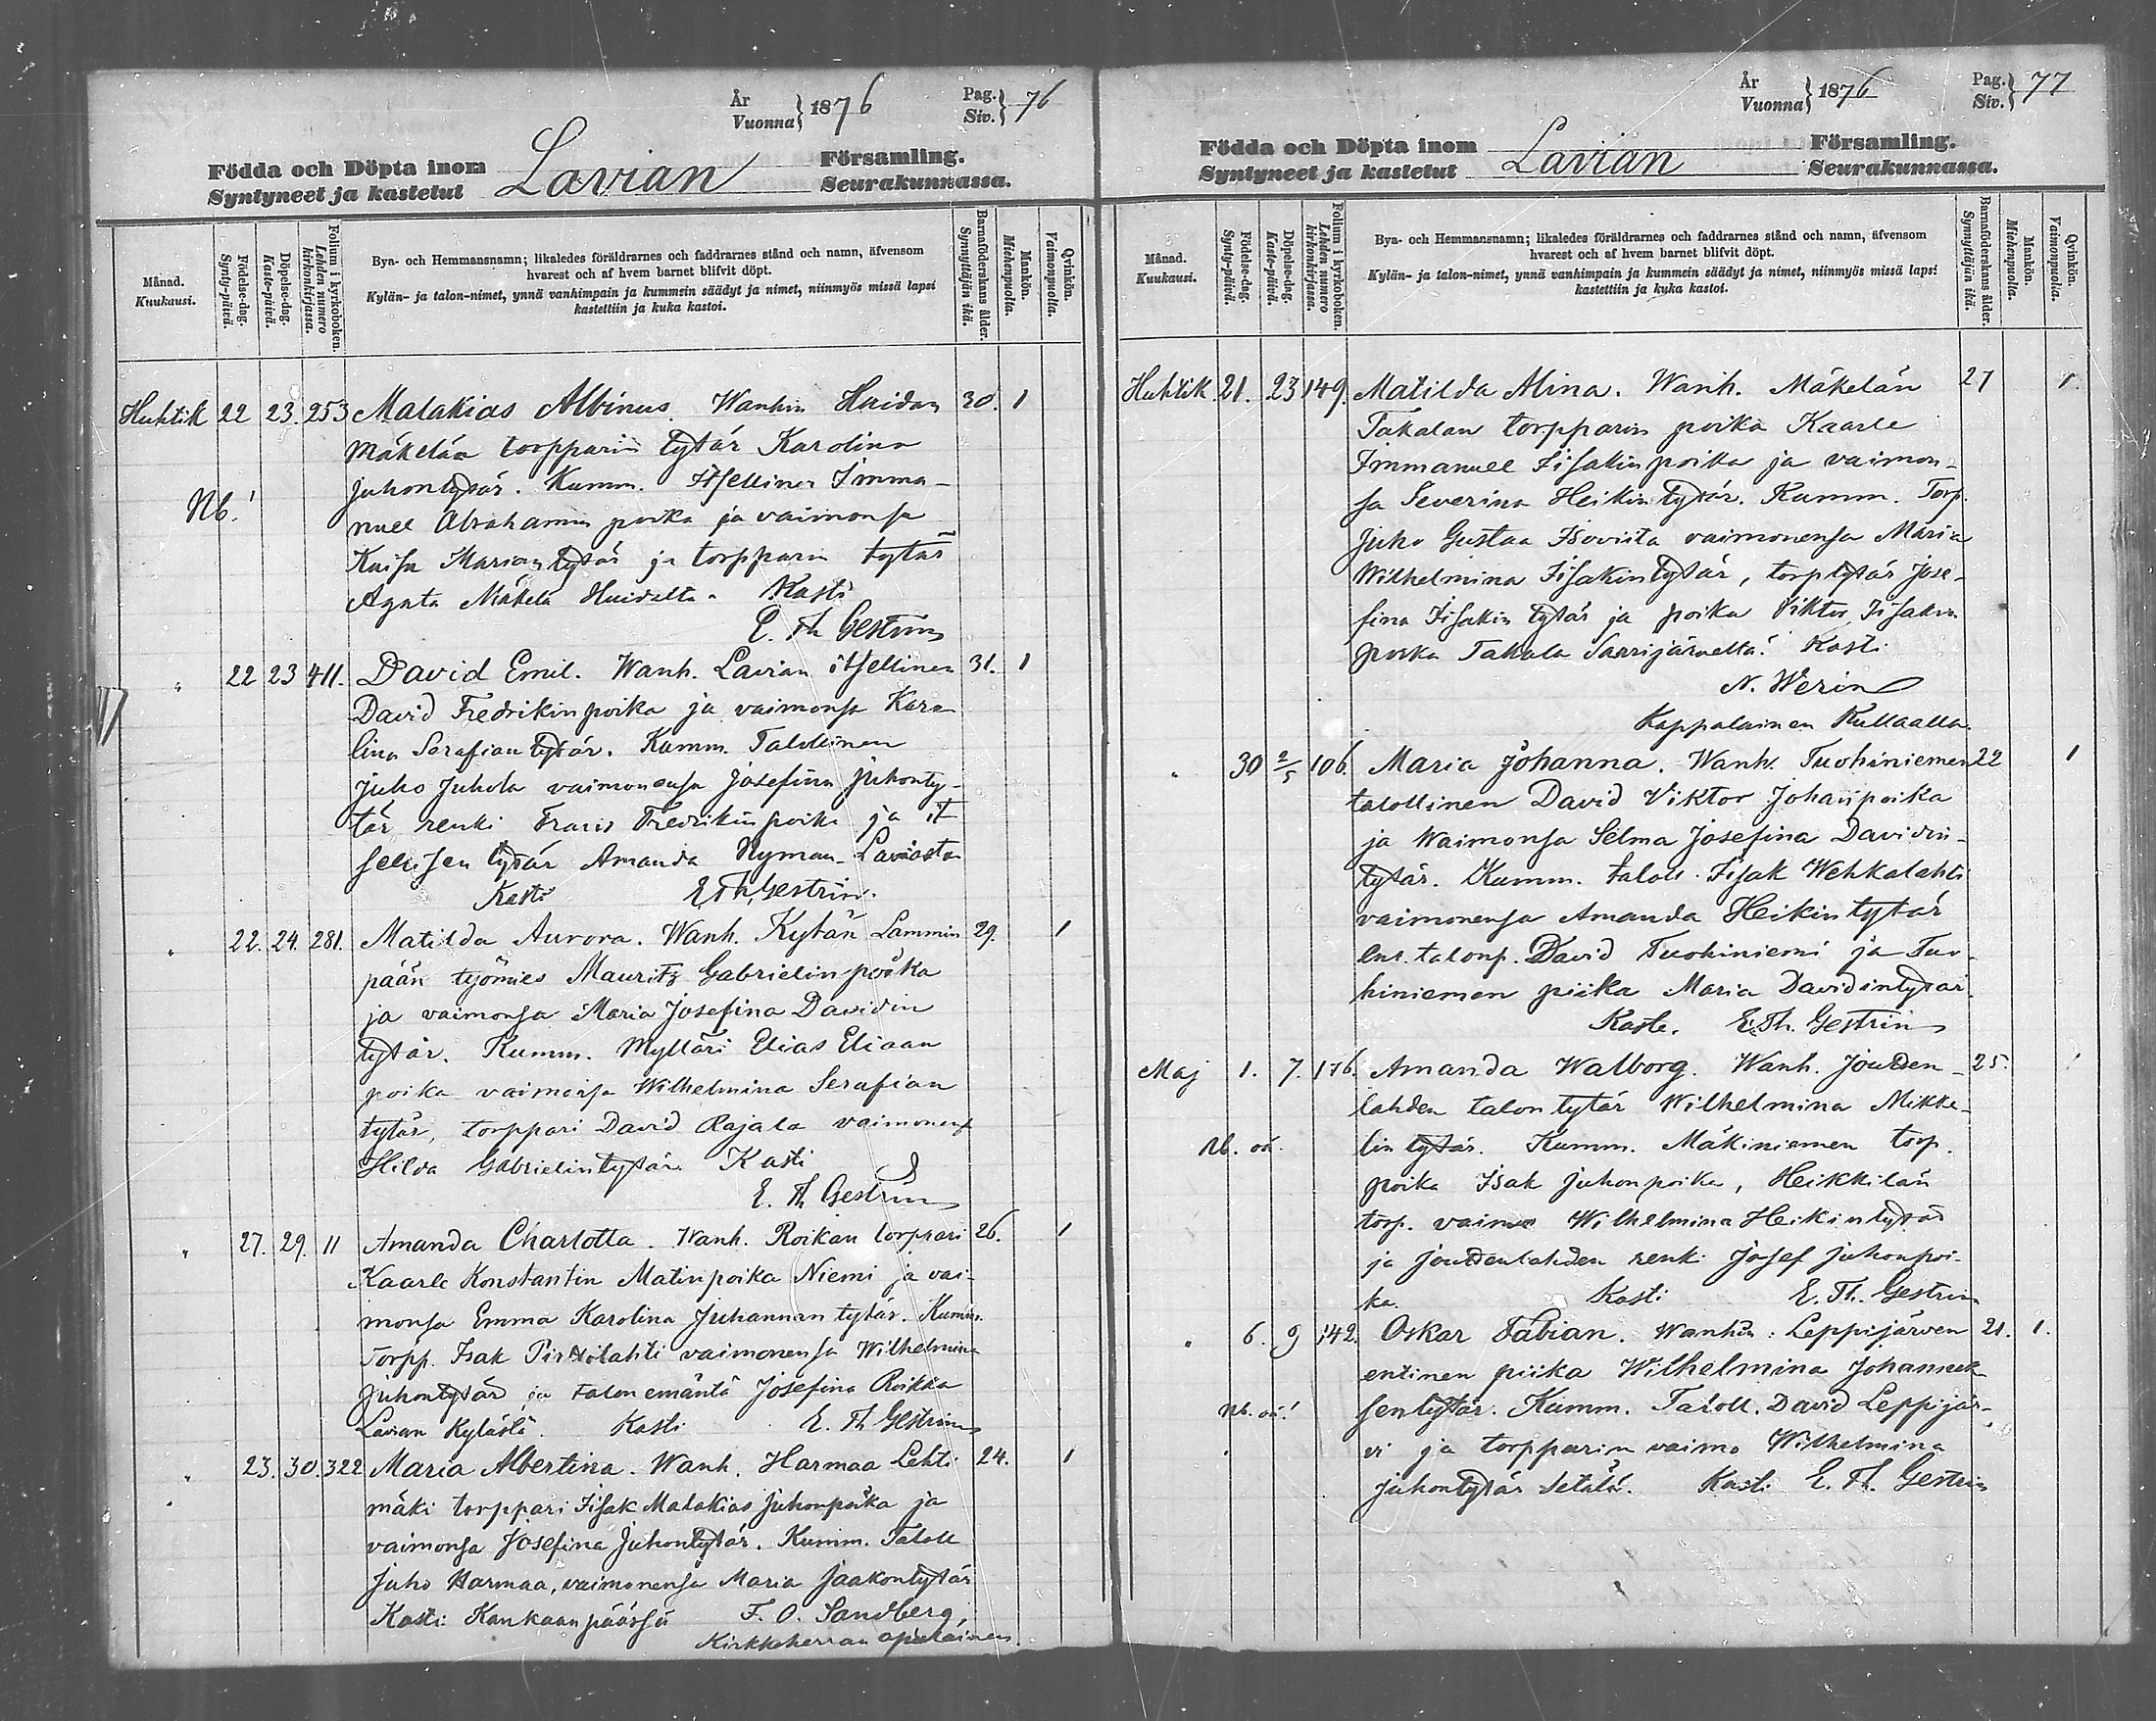 År
Vuonna } 1876
Pag.
Siv. } 76
Födda och Döpta inom
Syntyneet ja kastetut
Lavian
Församling.
Seurakunnassa.
Månad.
Kuukausi.
Födelse-dag.
Synty-päivä.
Döpelse-dag.
Kaste-päivä.
Folium i kyrkoboken.
Lehden numero
kirkonkirjassa.
Bya- och Hemmansnamn; likaledes föräldrarnes och faddrarnes stånd och namn, äfvensom
hvarest och af hvem barnet blifvit döpt.
Kylän- ja talon-nimet, ynnä vanhimpain ja kummein säädyt ja nimet, niinmyös missä lapsi
kastettiin ja kuka kastoi.
Barnaföderskans ålder.
Synnyttäjän ikä.
Mankön.
Miehenpuolia.
Qvinkön.
Vaimonpuolia.
Huhtik 22 23. 253 Malakias Albinus. Wanhin Huidan 30. 1
Mäkelän torpparin tytär Karolina
Juhontytär. Kumm. Itsellinen Imma-
Nb!
nuel Abrahamin poika ja vaimonsa
Kaisa Mariantytär ja torpparin tytär
Agata Mäkelä Huidalta. Kasti
E. Th Gestrin
" 22 23 411. David Emil. Wanh. Lavian itsellinen 31. 1
David Fredrikinpoika ja vaimonsa Karo
lina Serafiantytär. Kumm. Talollinen
Juho Juhola vaimonensa Josefina Juhonty-
tär renki Frans Fredrikinpoika ja it
sellisen tytär Amanda Nyman Laviosta
Kasti E Th Gestrin.
" 22. 24. 281. Matilda Aurora. Wanh. Kylän Lammin 29. 1
pään työmies Mauritz Gabrielinpoika
ja vaimonsa Maria Josefina Davidin
tytär. Kumm. Mylläri Elias Eliaan
poika vaimonsa Wilhelmina Serafian
tytär, torppari David Rajala vaimonens
Hilda Gabrielintytär. Kasti
E. Th Gestrin
" 27. 29. 11 Amanda Charlotta. Wanh. Roikan torppari 26. 1
Kaarle Konstantin Matinpoika Niemi ja vai-
monsa Emma Karolina Juhannantytär. Kumm.
Torpp. Isak Pirttilahti vaimonensa Wilhelmina
Juhontytär ja talon emäntä Josefina Roikka
Lavian Kylästä. Kasti E. Th Gestrin
" 23. 30. 322 Maria Albertina. Wanh. Harmaa Lehti 24. 1
mäki torppari Iisak Malakias Juhonpoika ja
vaimonsa Josefina Juhontytär. Kumm. Taloll
Juho Harmaa, vaimonensa Maria Jaakontytär
Kasti Kankaanpäässä F. O. Sandberg,
Kirkkoherran apulainen.
År
Vuonna } 1876
Pag.
Siv. } 77
Födda och Döpta inom
Syntyneet ja kastetut
Lavian
Församling.
Seurakunnassa.
Månad.
Kuukausi.
Födelse-dag.
Synty-päivä.
Döpelse-dag.
Kaste-päivä.
Folium i kyrkoboken.
Lehden numero
kirkonkirjassa.
Bya- och Hemmansnamn; likaledes föräldrarnes och faddrarnes stånd och namn, äfvensom
hvarest och af hvem barnet blifvit döpt.
Kylän- ja talon-nimet, ynnä vanhimpain ja kummein säädyt ja nimet, niinmyös missä lapsi
kastettiin ja kuka kastoi.
Barnaföderskans ålder.
Synnyttäjän ikä.
Mankön.
Miehenpuolia.
Qvinkön.
Vaimonpuolia.
Huhtik. 21. 23 149. Matilda Alina. Wanh. Mäkelän 27 1.
Takalan torpparin poika Kaarle
Immanuel Iisakinpoika ja vaimon-
sa Severina Heikintytär. Kumm. Torp.
Juho Gustaa Isoviita vaimonensa Maria
Wilhelmina Iisakintytär, torptytär Jose-
fina Iisakin tytär ja poika Viktor Iisakin
poika Takala Sarrijärveltä. Kasti
N. Werin
Kappalainen Kullaalla.
" 30 2/5 106. Maria Johanna. Wanh. Tuohiniemen 22 1
talollinen David Viktor Johanpoika
ja Waimonsa Selma Josefina Davidin-
tytär. Kumm. taloll. Iisak Wehkalahti
vaimonensa Amanda Heikintytär
ent. talonp. David Tuohiniemi ja Tuo-
hiniemen piika Maria Davidintytär.
Kaste. E. Th. Gestrin
Maj 1. 7. 176. Amanda Walborg. Wanh. Jouden- 25.
lahden talon tytär Wilhelmina Mikke-
Nb. oä.
lin tytär. Kumm. Mäkiniemen torp.
poika Isak Juhonpoika, Heikkilän
torp. vaimo Wilhelmina Heikintytär
ja Joudenlahden renki Josef Juhonpoi-
ka. Kasti E. Th. Gestrin
" 6. 9 142. Oskar Fabian. Wanhin: Leppijärven 21. 1.
entinen piika Wilhelmina Johannek
Nb. oä!
sentytär. Kumm. Taloll. David Leppijär-
vi ja torpparin vaimo Wilhelmina
Juhontytär Setälä. Kasti E. Th. Gestrin